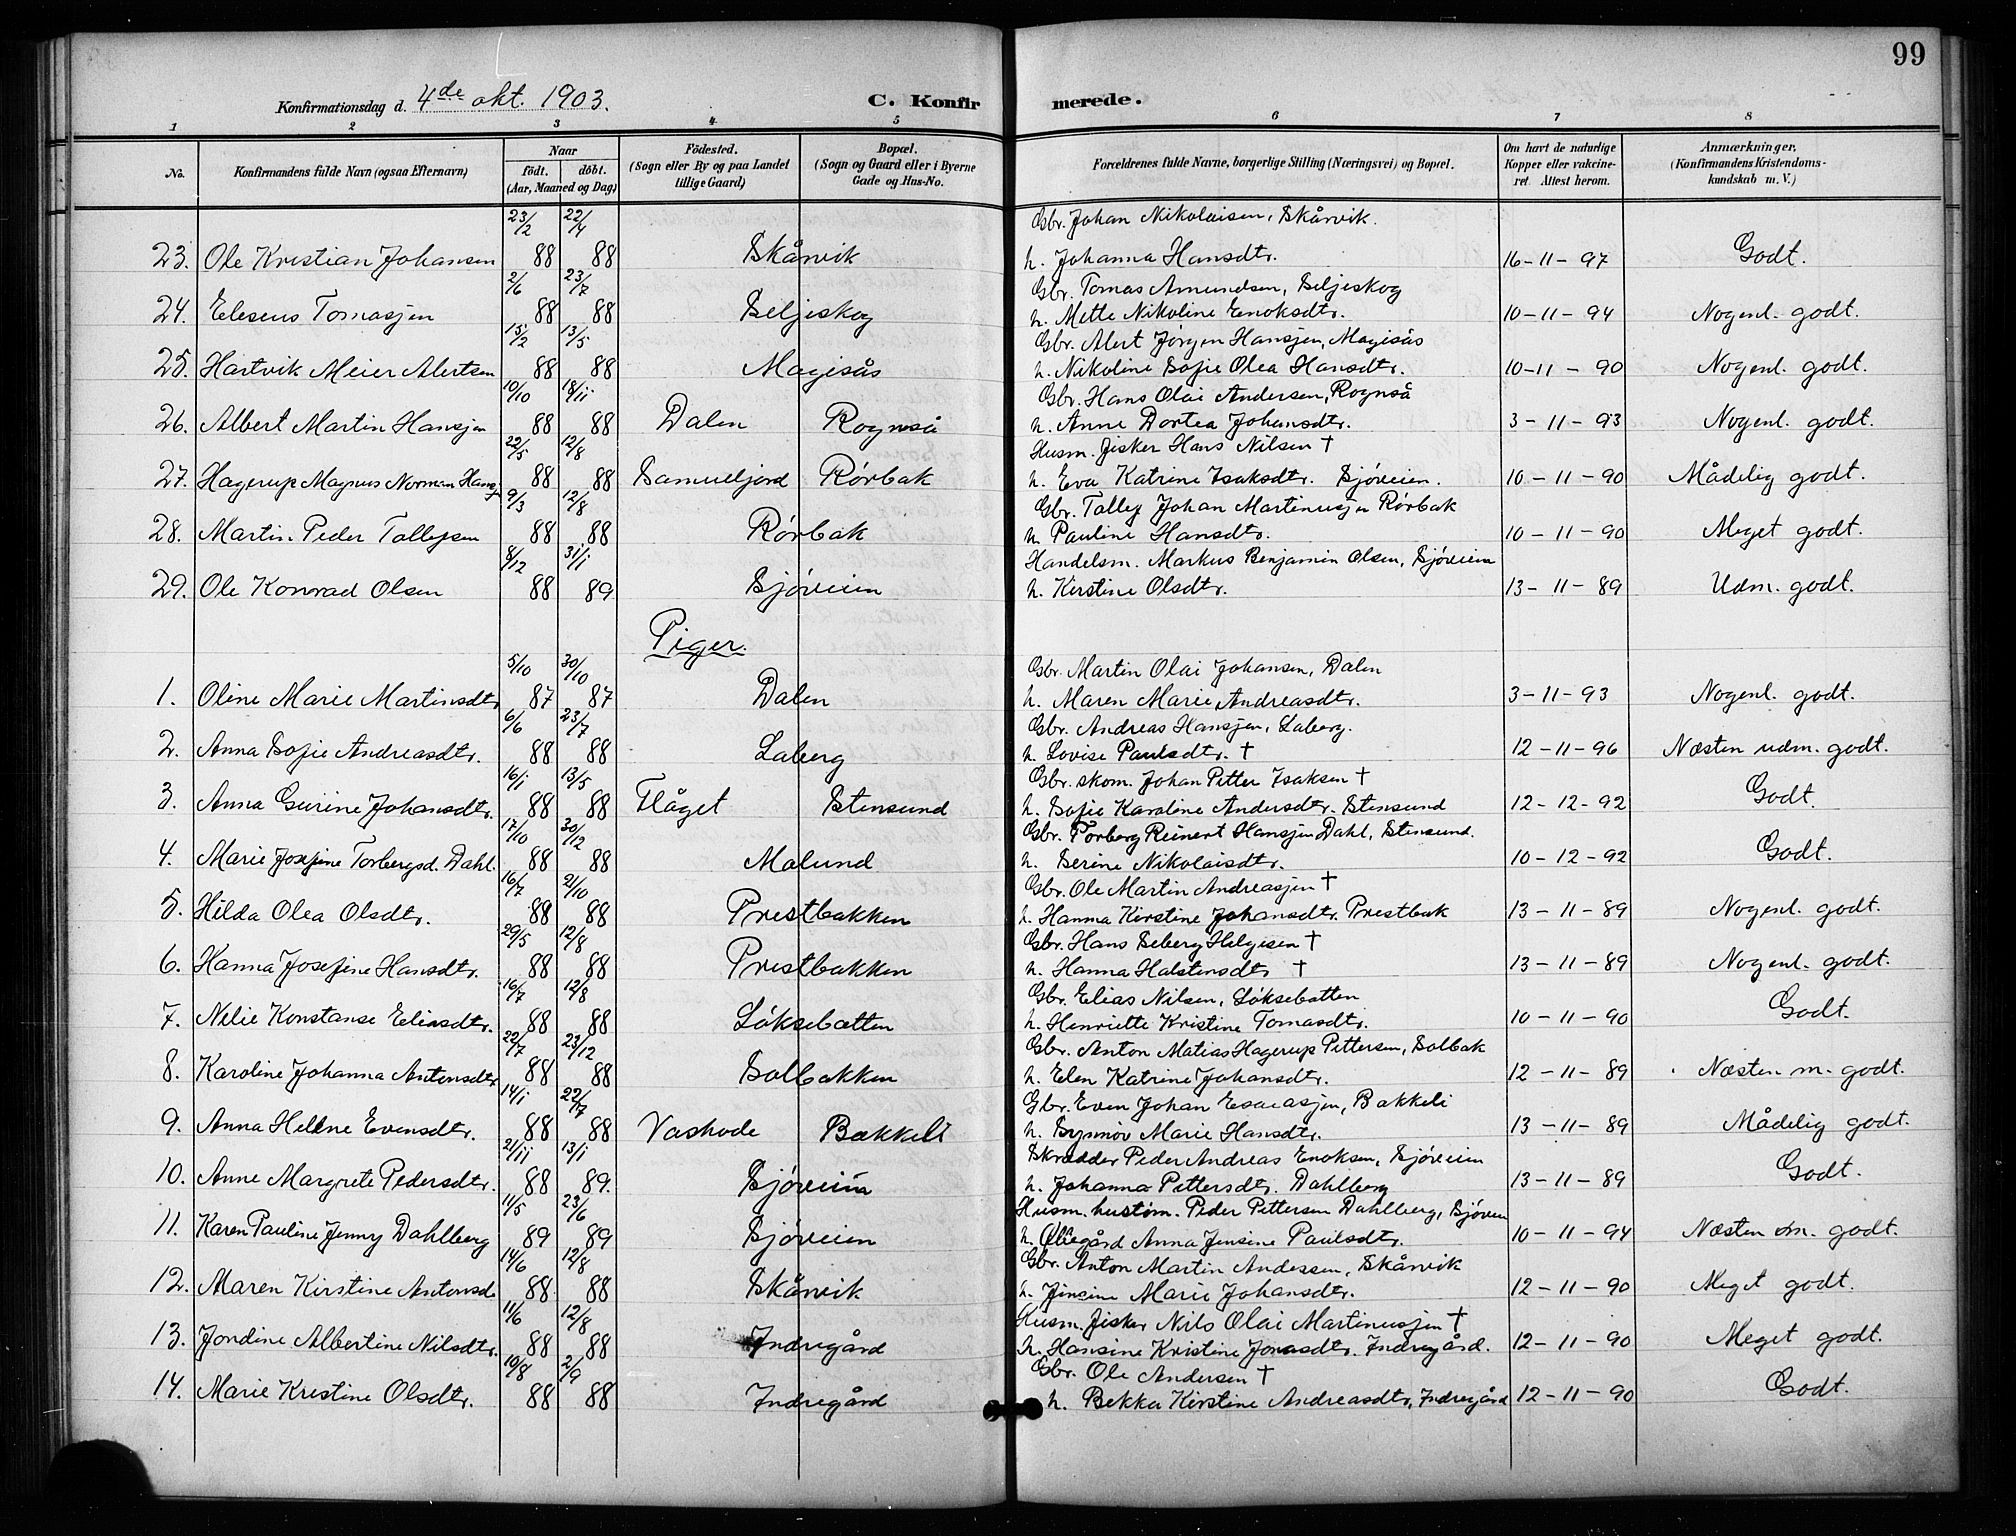 99
Konfirmationsdag d. 4de okt. 1903.
C. Konfirmerede.
1 2 3 4 5 6 7 8
No.
Konfirmandens fulde Navn (ogsaa Efternavn)
Naar
födt. döbt.
(Aar, Maaned og Dag)
Födested.
(Sogn eller By og paa Landet
tillige Gaard)
Bopæl.
(Sogn og Gaard eller i Byerne
Gade og Hus-No.
Forældrenes fulde Navne, borgerlige Stilling (Næringsvei) og Bopæl.
Om havt de naturlige
Kopper eller vakcine-
ret. Attest herom.
Anmærkninger,
(Konfirmandens Kristendoms-
kundskab m. V.)
23/2 22/4 Gbr. Johan Nikolaisen, Skårvik.
23. Ole Kristian Johansen 88 88 Skårvik h. Johanna Hansdtr. 16-11-97 Godt.
2/6 23/7 Gbr. Tomas Amundsen, Seljeskog
24. Eleseus Tomassen 88 88 Seljeskog h. Mette Nikoline Enoksdtr. 10-11-94 Nogenl. godt.
15/2 13/5 Gbr. Alert Jørgen Hanssen, Magisås
25. Hartvik Meier Alertsen 88 88 Magisås h. Nikoline Sofie Olea Hansdtr. 10-11-90 Nogenl. godt.
10/10 18/11 Gbr. Hans Olai Andersen, Rognså
26. Albert Martin Hanssen 88 88 Dalen Rognså h. Anne Dortea Johansdtr. 3-11-93 Nogenl. godt.
22/5 12/8 Husm. fisker Hans Nilsen †
27. Hagerup Magnus Norman Hanss. 88 88 Samueljord Rørbak h. Eva Katrine Isaksdtr. Sjøveien. 10-11-90 Mådelig godt.
9/3 12/8 Gbr. Tollef Johan Martinussen Rørbak
28. Martin Peder Tollefsen 88 88 Rørbak h. Pauline Hansdtr. 10-11-90 Meget godt.
8/12 31/1 Handelsm. Markus Benjamin Olsen, Sjøveien
29. Ole Konrad Olsen 88 89 Sjøveien h. Kirstine Olsdtr. 13-11-89 Udm. godt.
Piger.
5/10 30/10 Gbr. Martin Olai Johansen, Dalen
1. Oline Marie Martinsdtr. 87 87 Dalen h. Maren Marie Andreasdtr. 3-11-93 Nogenl. godt.
6/6 23/7 Gbr. Andreas Hanssen, Laberg.
2. Anna Sofie Andreasdtr. 88 88 Laberg h. Lovise Paulsdtr. † 12-11-96 Næsten udm. godt.
16/1 13/5 Gbr. skom. Johan Petter Isaksen †
3. Anna Gurine Johansdtr. 88 88 Flåget Stensund h. Sofie Karoline Andersdtr. Stensund 12-12-92 Godt.
17/10 30/12 Gbr. Torberg Reinert Hanssen Dahl, Stensund.
4. Marie Josefine Torbergsd. Dahl. 88 88 Molund h. Serine Nikolaisdtr. 10-12-92 Godt.
16/7 21/10 Gbr. Ole Martin Andreassen †
5. Hilda Olea Olsdtr. 88 88 Prestbakken h. Hanna Kirstine Johansdtr. Prestbak 13-11-89 Nogenl. godt.
29/5 12/8 Gbr. Hans Seberg Helgesen †
6. Hanna Josefine Hansdtr. 88 88 Prestbakken h. Hanna Halstensdtr † 13-11-89 Nogenl. godt.
16/7 12/8 Gbr. Elias Nilsen, Løksebotten
7. Nelie Konstanse Eliasdtr. 88 88 Løksebotten h. Henriette Kristine Tomasdtr. 10-11-90 Godt.
22/7 23/12 Gbr. Anton Matias Hagerup Pettersen, Solbak
8. Karoline Johanna Antonsdtr 88 88 Solbakken h. Elen Katrine Johansdtr. 12-11-89 Næsten m. godt.
14/1 22/7 Gbr. Even Johan Esaiassen, Bakkeli
9. Anna Helene Evensdtr. 88 88 Vashode Bakkeli h. Synnøv Marie Hansdtr. 13-11-89 Mådelig godt.
21/11 13/1 Skrædder Peder Andreas Enoksen, Sjøveien
10. Anne Margrete Pedersdtr. 88 89. Sjøveien h. Johanna Pettersdtr. Dahlberg 13-11-89 Godt.
11/5 23/6 Husm. hustøm. Peder Pettersen Dahlberg, Sjøveien
11. Karen Pauline Jenny Dahlberg 89 89 Sjøveien h. Ollegård Anna Jensine Paulsdtr. 10-11-94 Næsten m. godt.
14/6 12/8 Gbr. Anton Martin Andersen, Skårvik
12. Maren Kirstine Antonsd. 88 88 Skårvik h. Jensine Marie Johansdtr. 12-11-90 Meget godt.
11/6 12/8 Husm. fisker Nils Olai Martinussen †
13. Jordine Albertine Nilsdtr. 88 88 Indregård h. Hansine Kristine Jonasdtr. Indregård. 12-11-90 Meget godt.
10/8 2/9 Gbr. Ole Andersen †
14. Marie Kristine Olsdtr. 88 88 Indregård h. Bekka Kirstine Andreasdtr, Indregård 12-11-90 Godt.